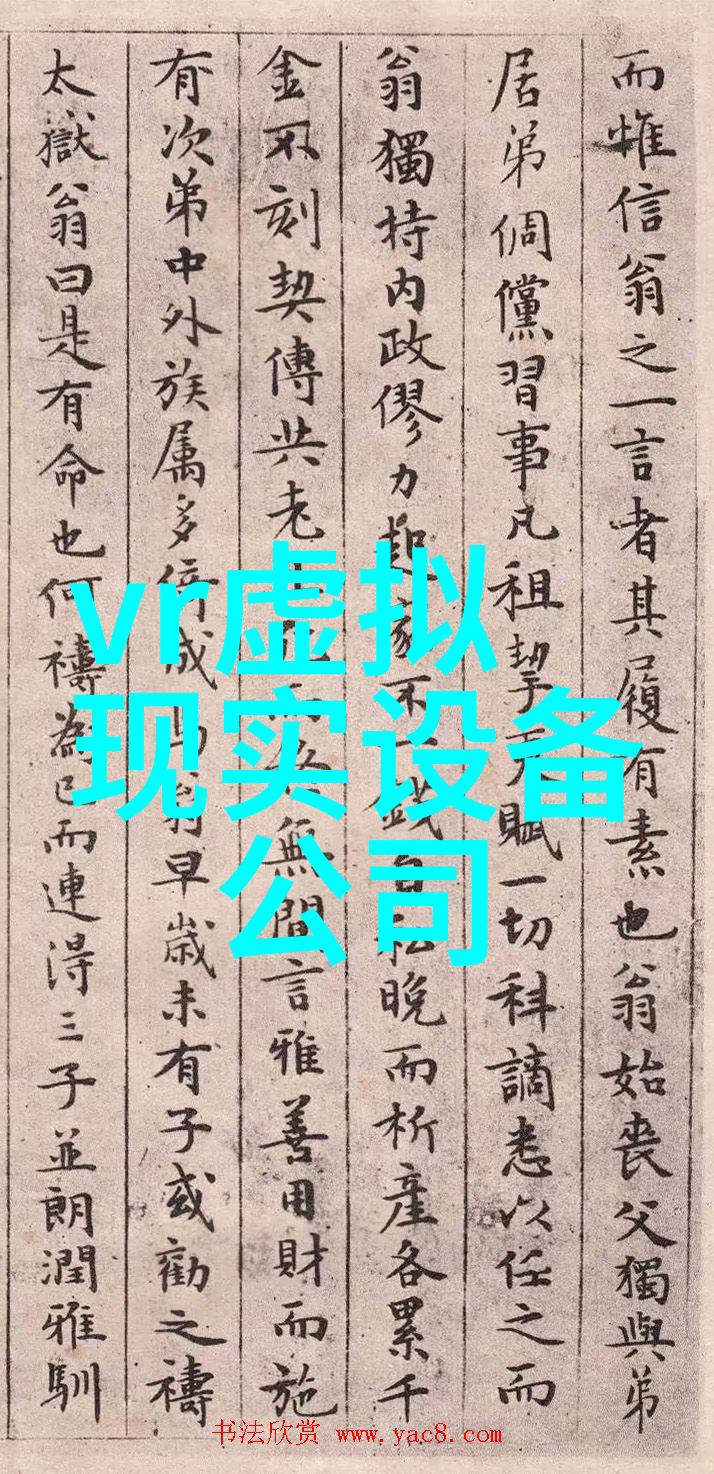 而惟信翁之一言者其履有素也翁始喪父獨與弟
居弟倜儻習事凡租挈天賦一切科謫悉以任之而
翁獨持内政僇力起家不一錢自私晚而析產各累千
金不刻契傳共老
無間言雅善用財而施
有次第中外族属多倚成
翁早歲未有子或勸之禱
太嶽翁曰是有命也何禱為已而連得三子並朗潤雅馴
vr虚拟
现实设备
公司
书法欣赏 www.yac8.com